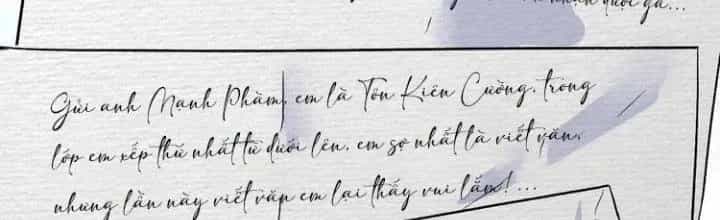 dưới ga...
Gửi anh Mạnh Phàm, em là Tôn Kiên Cường. trong
lớp em xếp thứ nhất từ dưới lên. em sợ nhất là viết văn.
nhưng lần này viết văn em lại thấy vui lắm! ...